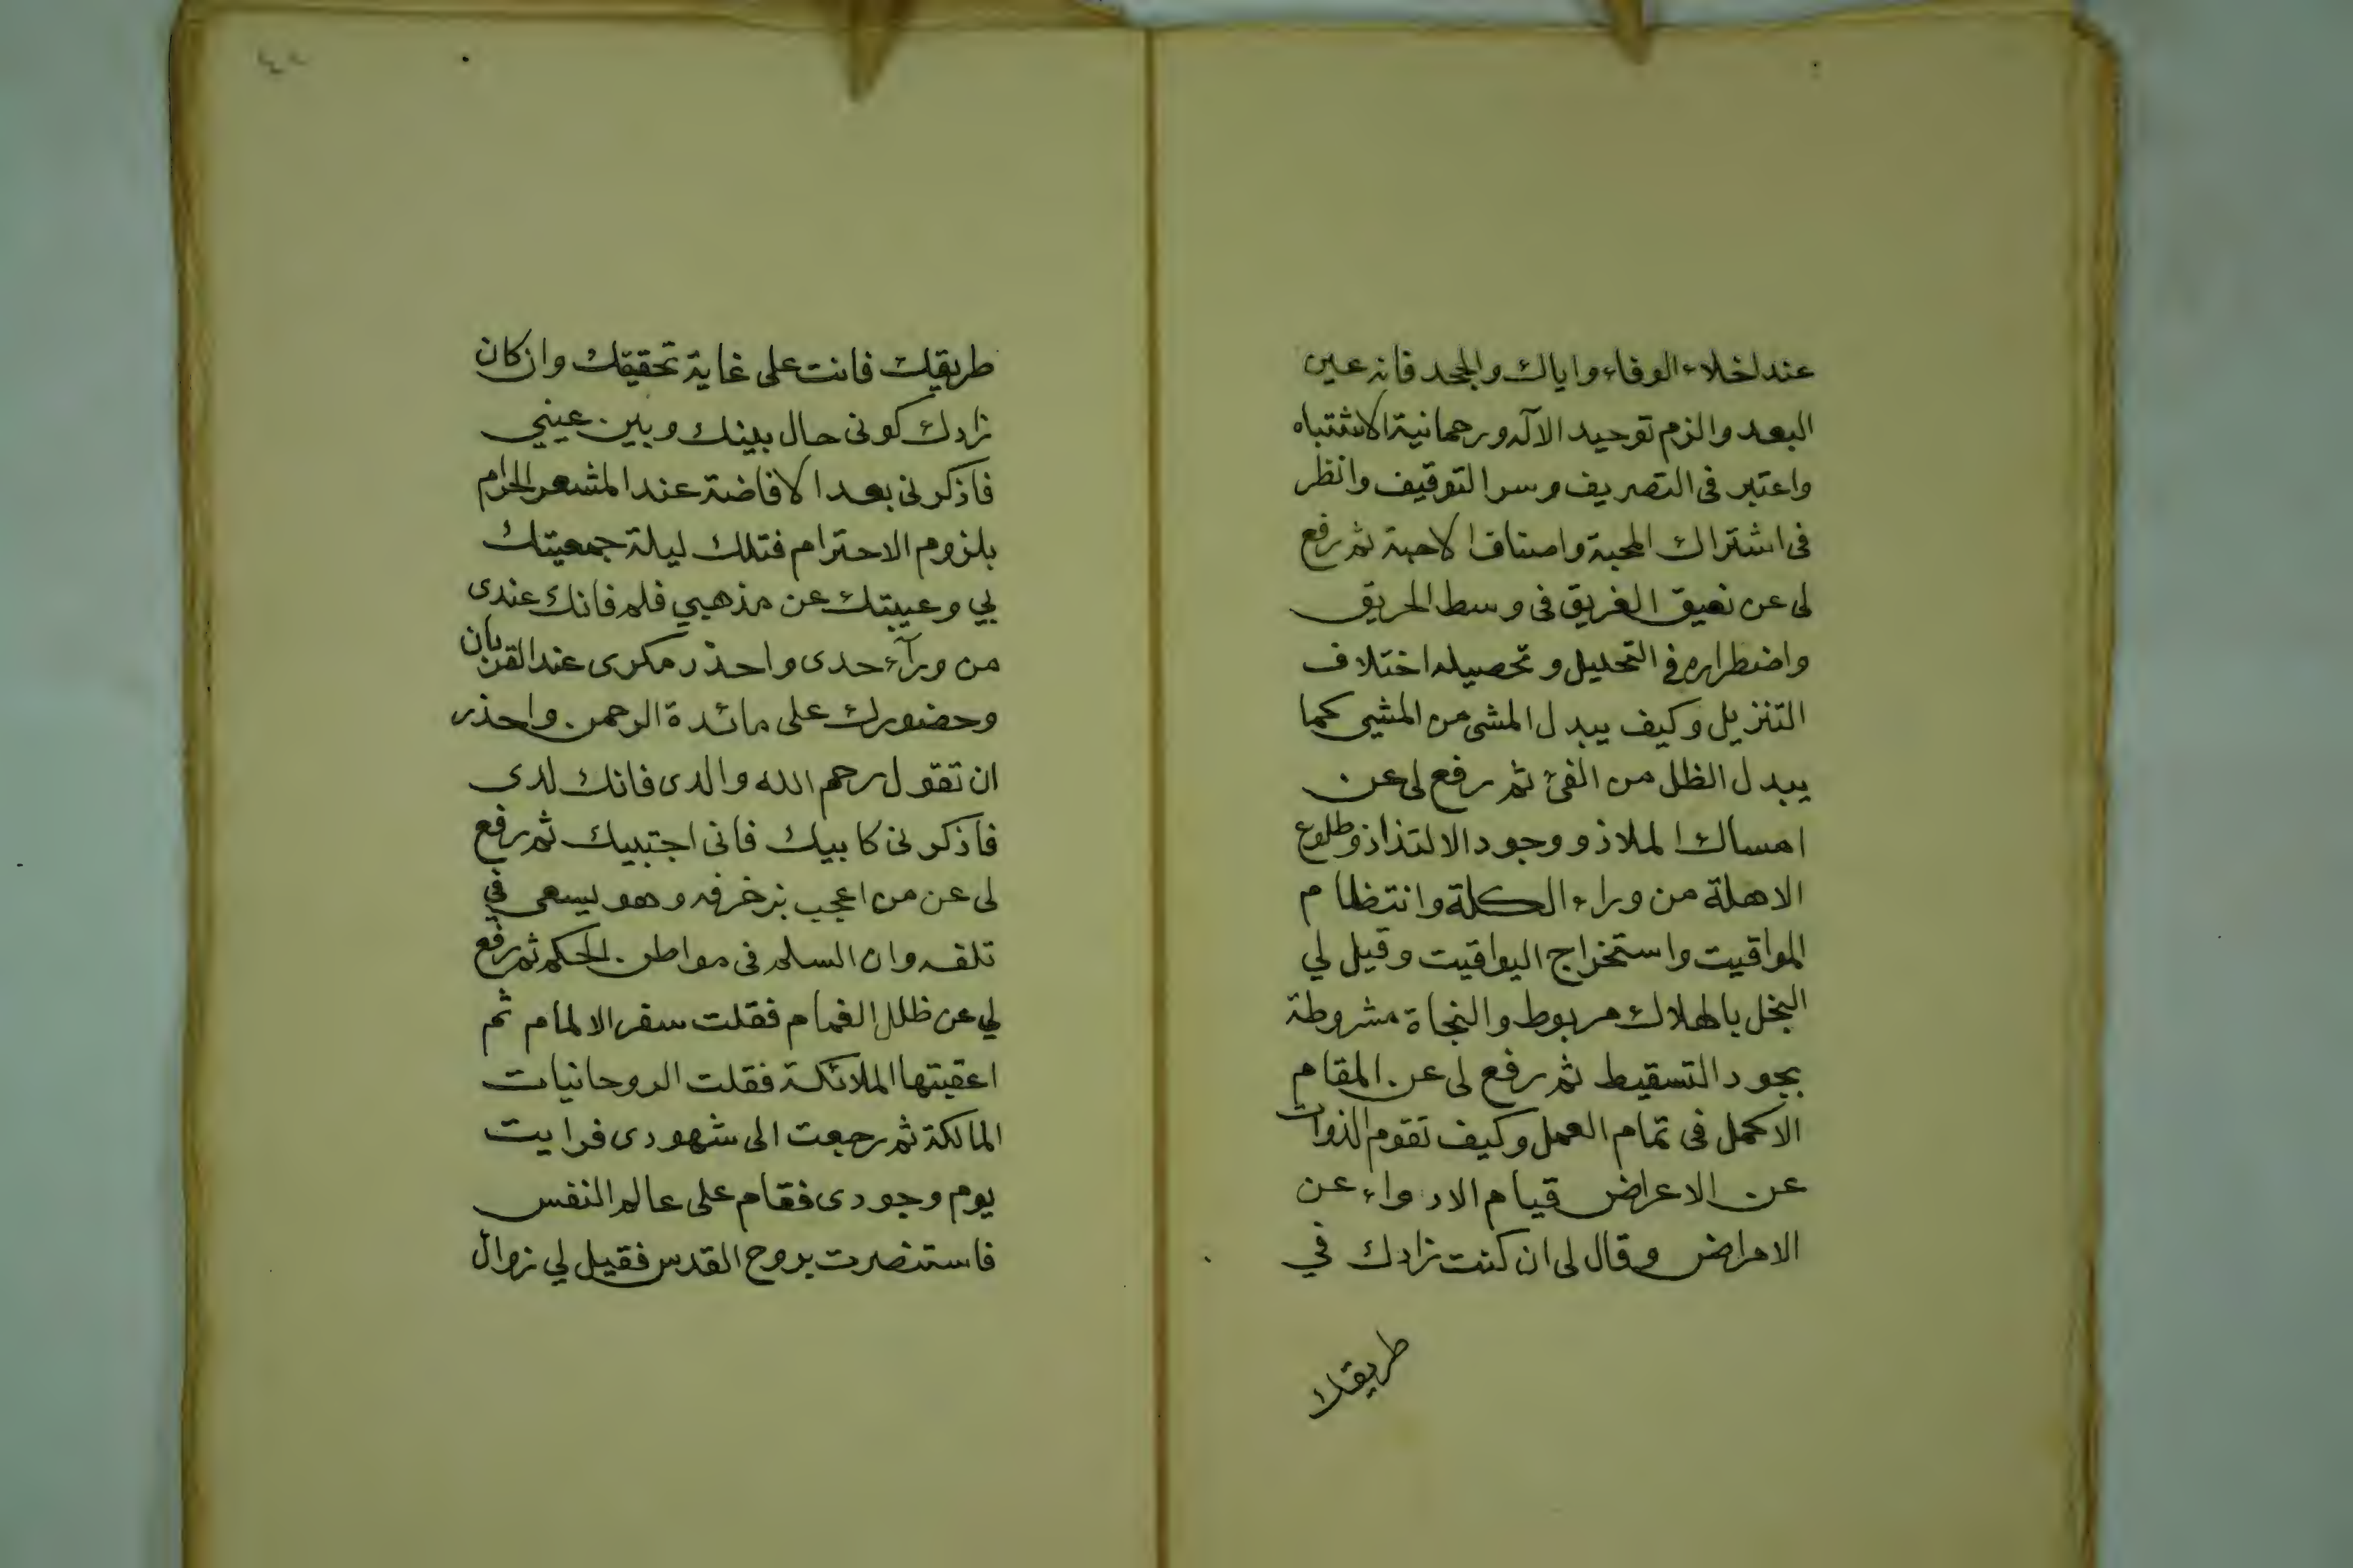 عند اخلاء الوفاء واياك والجحد فانه عين
البعد والزم توحيد الآله ورحمانية الاشتباه
واعتبر فى التصريف وسر التوقيف وانظر
فى اشتراك المحبة واصناف الاحبة ثم رفع
لى عن نعيق الغريق فى وسط الحريق
واضطراره فى التحليل وتحصيله اختلاف
التنزيل وكيف يبدل المشى من المشيى كما
يبدل الظلل من الفئ ثم رفع لى عن
امساك الملاذ ووجود الالتذاذ وطلوع
الاهلة من وراء الكلة وانتظام
المواقيت واستخراج اليواقيت وقيل لي
البخل بالهلاك مربوط والنجاة مشروطة
بجود التسقيط ثم رفع لى عن المقام
الاكمل فى تمام العمل وكيف تقوم الذوات
عن الاعراض قيام الادواء عن
الامراض وقال لى ان كنت زادك في
طريقك
طريقك فانت على غاية تحقيقك وان كان
زادك كونى حال بينك وبين عيني
فاذكرنى بعد الافاضة عند المشعر الحرام
بلزوم الاحترام فتلك ليلة جمعيتك
بي وغيبتك عن مذهبي فلم فانك عندى
من ورآء حدى واحذر مكرى عند القربان
وحضورك على مائدة الرحمن واحذر
ان تقول رحم الله والدى فانك لدى
فاذكرنى كابيك فانى اجتبيك ثم رفع
لى عن من اعجب بزخرفه وهو يسعى في
تلفه وان السلم فى مواطن الحكم ثم رفع
لي عن ظلل الغمام فقلت سفر الالمام ثم
اعقبتها الملائكة فقلت الروحانيات
المالكة ثم رجعت الى شهودى فرايت
يوم وجودى فقام على عالم النفس
فاستنصرت بروح القدس فقيل لي زوال